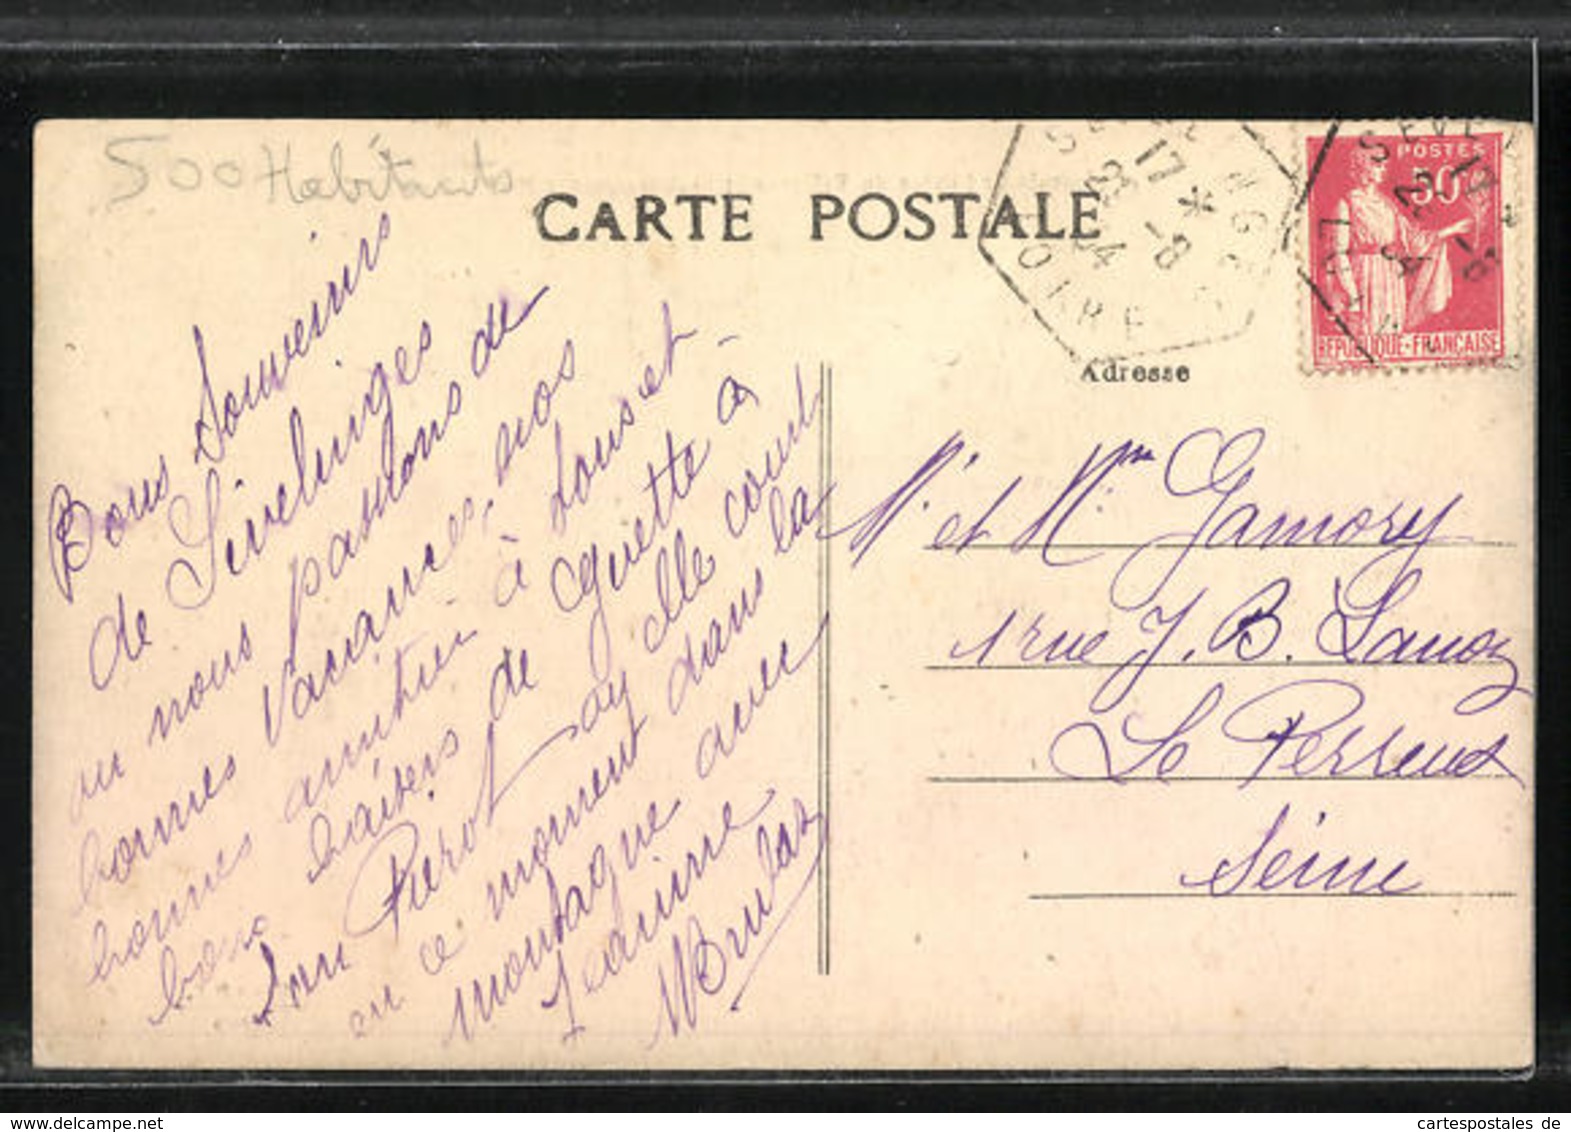 500 Habitants
CARTE POSTALE
Adresse
POSTES
50
REPUBLIQUE-FRANÇAISE
LOIRE
17 * 23 -8 34
Bons Souvenirs
de Sevelinges
ou nous passons de
bonnes vacances, nos
bonnes amitiés à tous et
bons baisers de Guette à
son Pierrot elle court
en ce moment dans la
montagne avec
Jeanine
Mr et Mme Gamory
1 rue J. B. Lanoz
Le Perreux
Seine
cartespostales de